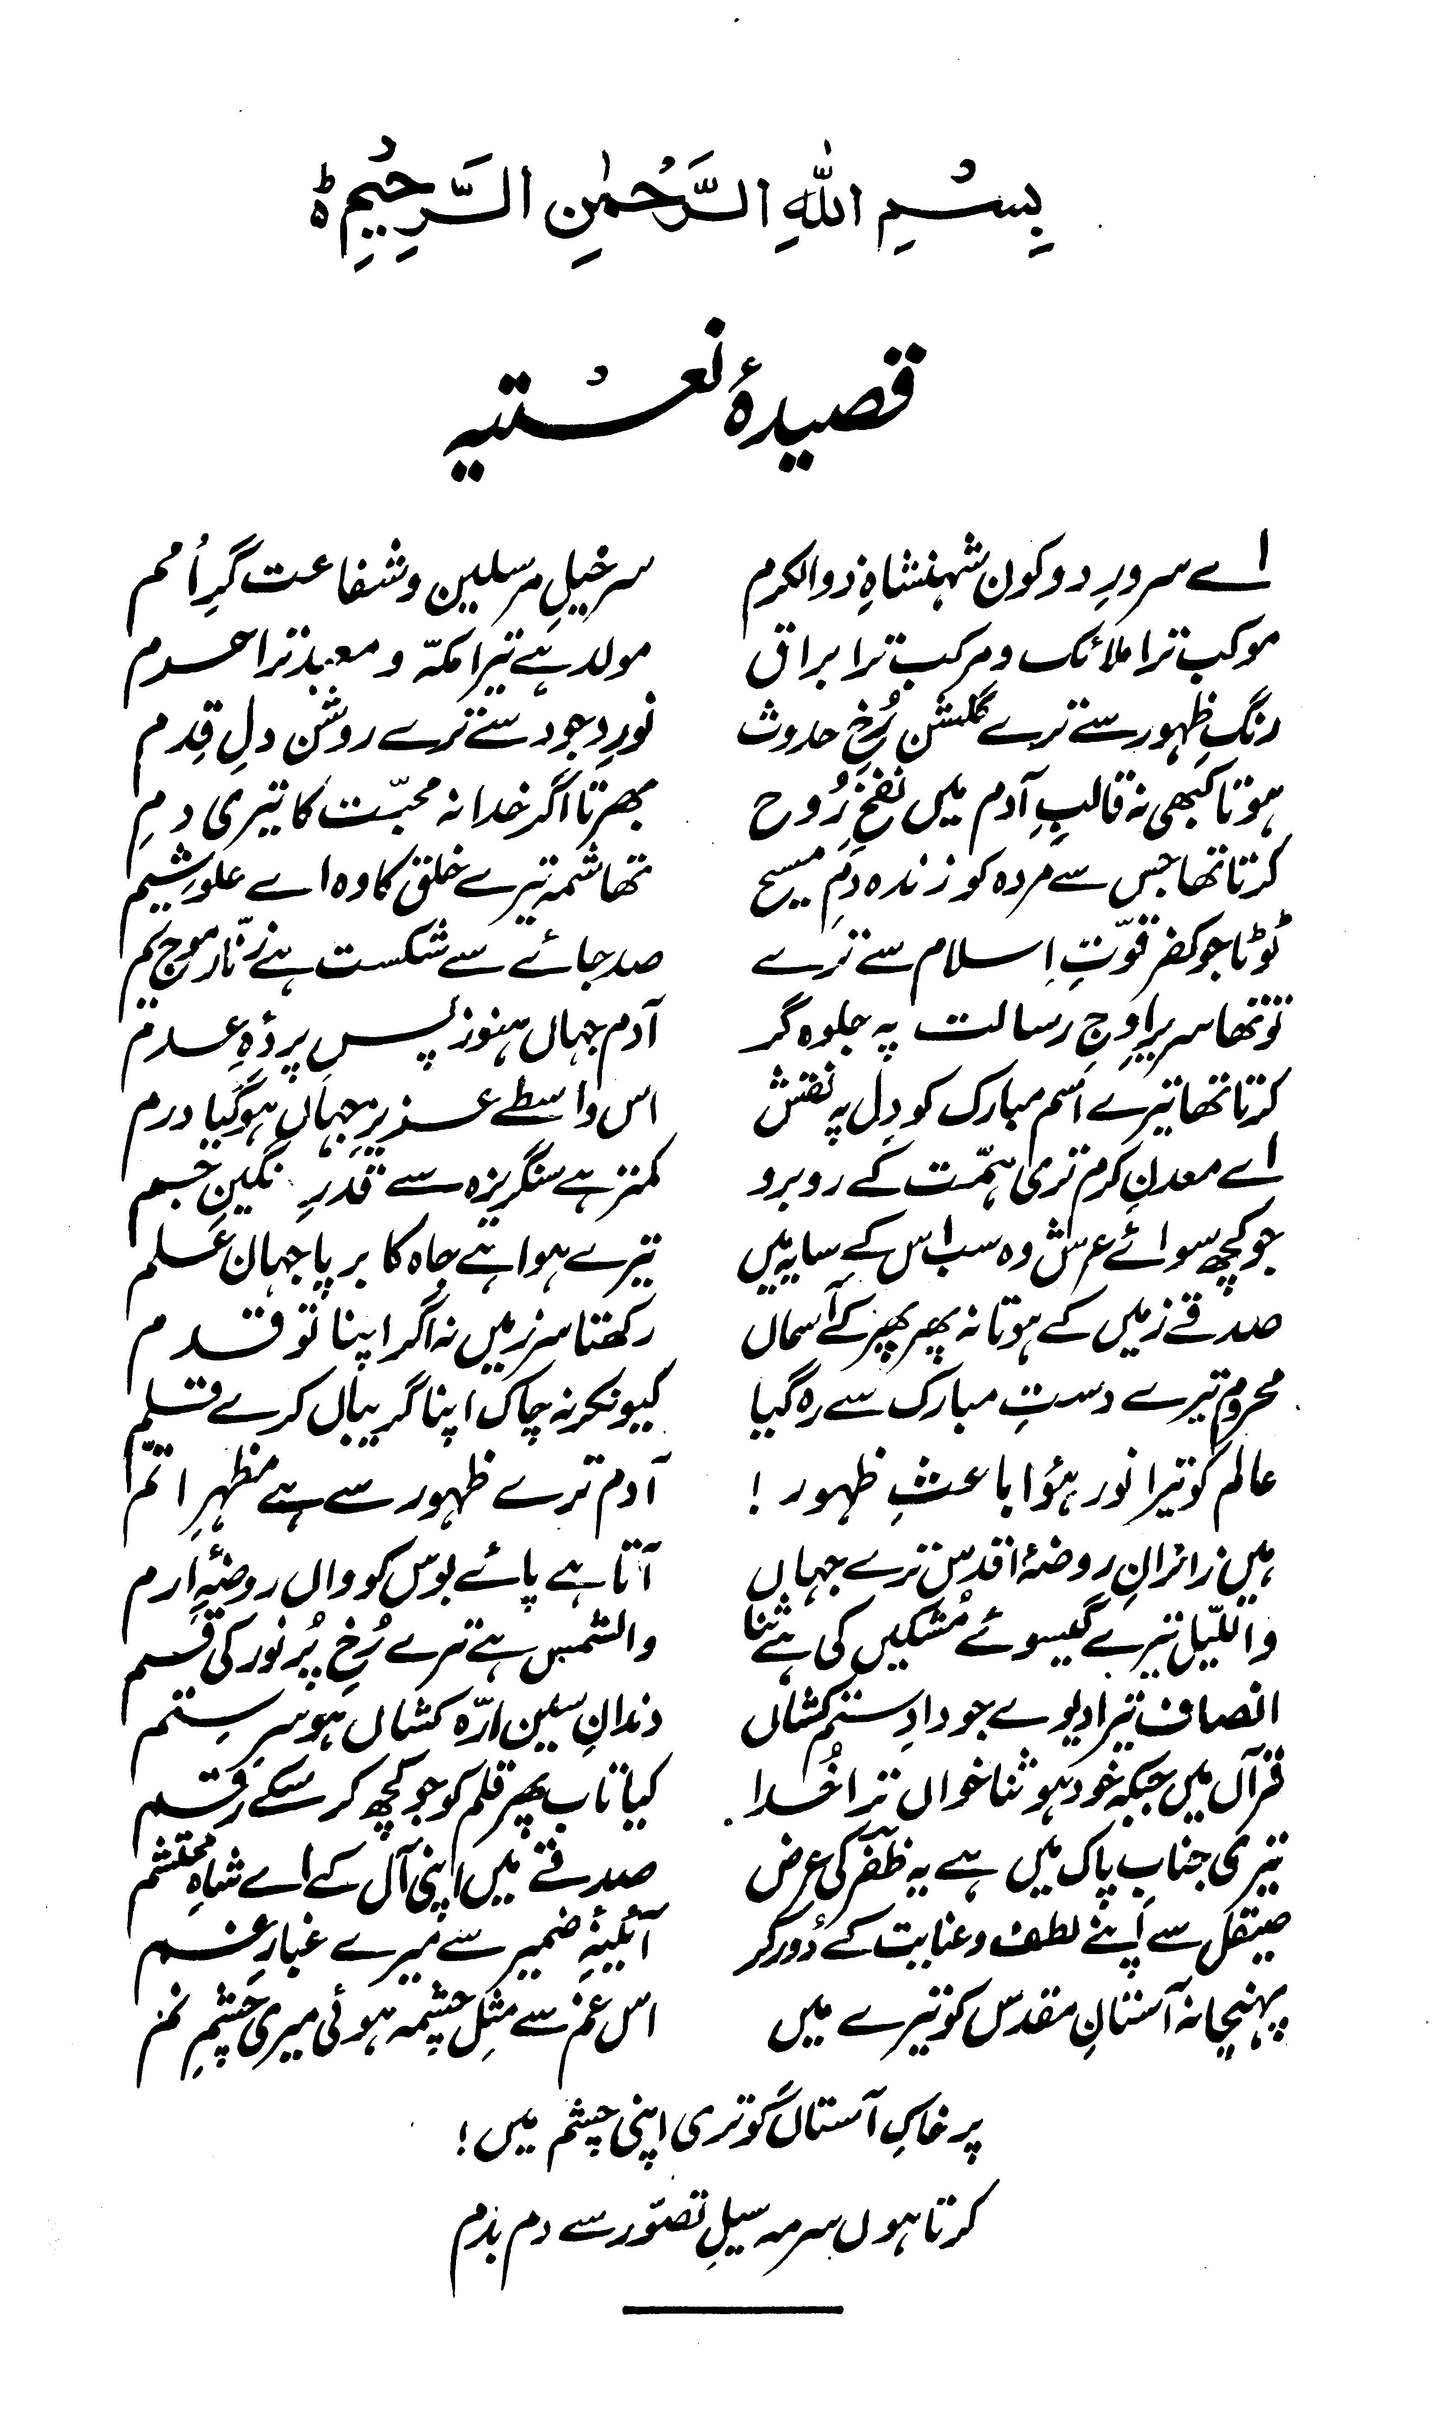 بِسْمِ اللّٰهِ الرَّحْمٰنِ الرَّحِيْمِ ط
قصیدۂ نعتیہ
اے سرورِ دو کون شہنشاہِ ذوالکرم سرخیلِ مرسلین و شفاعت گرِ اُمم
موکب ترا ملائک و مرکب ترا براق مولد ہے تیرا مکّہ و معبد ترا حرم
رنگِ ظہور سے ترے گلشن رُخِ حدوث نورِ وجود سے ترے روشن دلِ قِدم
ہوتا کبھی نہ قالبِ آدم میں نفخِ رُوح بھرتا اگر خدا نہ محبّت کا تیری دم
کرتا تھا جس سے مردہ کو زندہ دمِ مسیح تھا شمہ تیرے خلق کا وہ اے علوِ شیم
ٹوٹا جو کفر قوّتِ اِسلام سے ترے صد جائے سے شکست ہے زنّار موجِ یم
تو تھا سریرِ اوجِ رسالت پہ جلوہ گر آدم جہاں ہنوز پسِ پردۂ عدم
کرتا تھا تیرے اسم مبارک کو دِل پہ نقش اس واسطے عزیزِ جہاں ہو گیا درم
اے معدنِ کرم تری ہمّت کے روبرو کمتر ہے سنگریزہ سے قدرِ نگینِ جم
جو کچھ سوائے عرش وہ سب اس کے سایہ میں تیرے ہوا ہے جاہ کا برپا جہان عَلم
صدقے زمیں کے ہوتا نہ پھر پھر کے آسماں رکھتا سرِ زمیں نہ اگر اپنا تو قدم
محروم تیرے دستِ مبارک سے رہ گیا کیونکر نہ چاک اپنا گریباں کرے قلم
عالم کو تیرا نور ہوُا باعثِ ظہور ! آدم ترے ظہور سے ہے مظہرِ اتمّ
ہیں زائرانِ روضۂ اقدس ترے جہاں آتا ہے پائے بوس کو واں روضۂِ اِرم
واللّیل تیرے گیسوئے مُشکیں کی ہے ثنا والشمس ہے ترے رُخِ پُر نور کی قسم
انصاف تیرا دیوے جو دادِ ستم کشاں دندانِ سین ارّہ کشاں ہو سرِ ستم
قرآں میں جبکہ خود ہو ثنا خواں ترا خُدا کیا تاب پھر قلم کو جو کچھ کر سکے رقم
تیری جنابِ پاک میں ہے یہ ظفرؔ کی عرض صدقے میں اپنی آل کے اے شاہِ محتشم
صیقل سے اَپنے لطف و عنایت کے دُور کر آئینۂِ ضمیر سے میرے غبارِ غم
پہنچا نہ آستانِ مقدس کو تیرے میں اس غم سے مثلِ چشمہ ہوئی میری چشمِ نم
پر خاکِ آستاں کو تری اپنی چشم میں !
کرتا ہوں سرمہ سیلِ تصوّر سے دم بدم